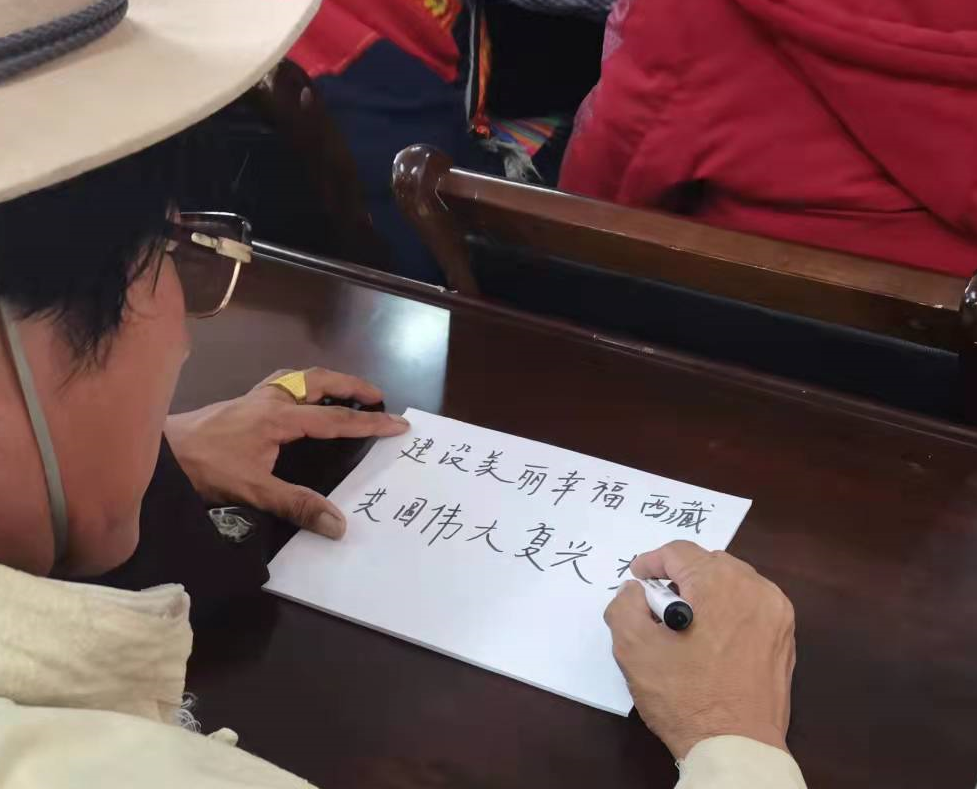 建设美丽幸福西藏
共圆伟大复兴